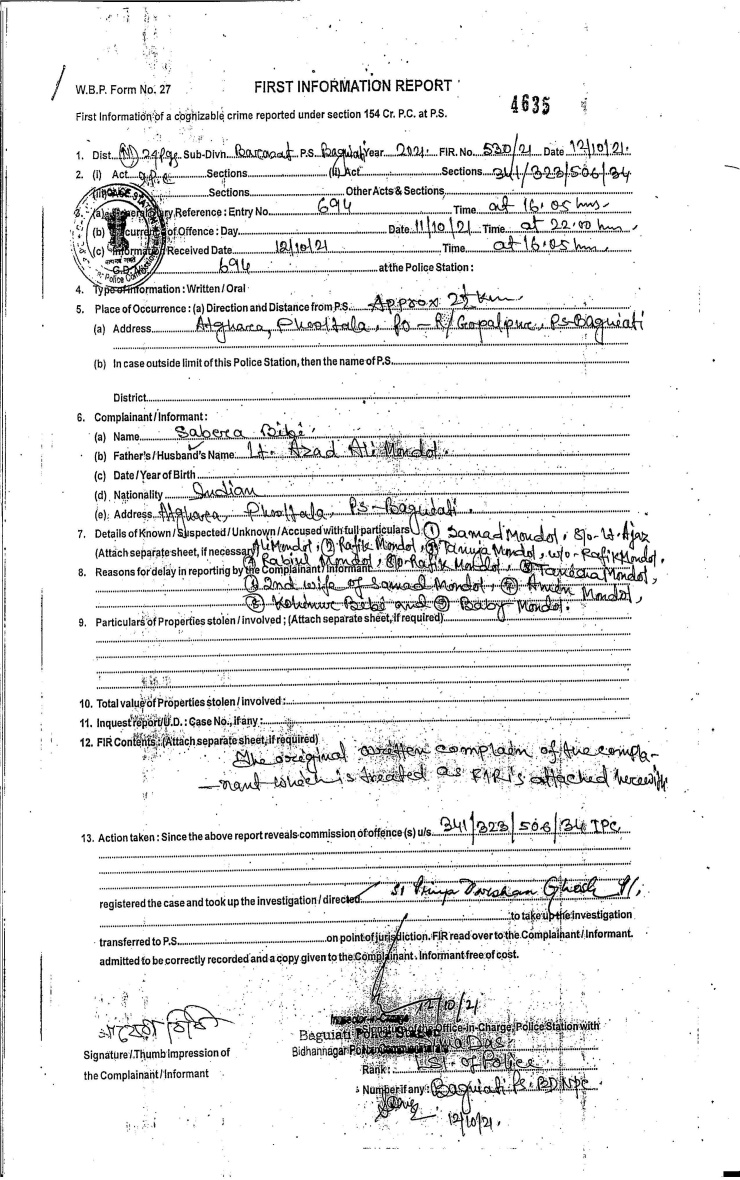 W.B.P. Form No. 27
FIRST INFORMATION REPORT
4635
First Information of a cognizable crime reported under section 154 Cr. P.C. at P.S.
1. Dist. (N) 24 Pgs Sub-Divn. Barasat P.S. Baguiati Year 2021 FIR. No. 530/21 Date 12/10/21.
2. (I) Act I.P.C Sections (II) Act Sections 341/323/506/34
Sections Other Acts & Sections
3. (a) General Diary Reference : Entry No. 694 Time at 16.05 hrs
(b) Occurrence of Offence : Day Date 11/10/21 Time at 22.00 hrs
(c) Information Received Date 12/10/21 Time at 16.05 hrs
694 at the Police Station :
4. Type of Information : Written / Oral
5. Place of Occurrence : (a) Direction and Distance from P.S. Approx 2½ km
(a) Address Atghara, Phooltala, Po - R/Gopalpur, Ps-Baguiati
(b) In case outside limit of this Police Station, then the name of P.S.
District
6. Complainant / Informant :
(a) Name Sabera Bibi.
(b) Father's / Husband's Name Lt. Azad Ali Mondol.
(c) Date / Year of Birth
(d) Nationality Indian
(e) Address Atghara, Phooltala, Ps-Baguiati.
7. Details of Known / Suspected / Unknown / Accused with full particulars (1) Samad Mondol, S/o- Lt. Ajaz
(Attach separate sheet, if necessary) Ali Mondol, (2) Rafik Mondol, (3) Tanuja Mondol, w/o - Rafik Mondol,
(4) Rabiul Mondol, S/o-Rafik Mondol, (5) Mondol,
8. Reasons for delay in reporting by the Complainant / Informant
(6) 2nd wife of Samad Mondol, (7) Mondol,
(8) Kohinur Bibi and (9) Baby Mondol.
9. Particulars of Properties stolen / involved ; (Attach separate sheet, if required)
10. Total value of Properties stolen / involved :
11. Inquest report / U.D. : Case No., if any :
12. FIR Contents : (Attach separate sheet, if required)
The original written complain of the compla-
-nant which is treated as FIR is attached herewith
13. Action taken : Since the above report reveals commission of offence (s) u/s. 341/323/506/34 IPC
registered the case and took up the investigation / directed SI Priya Darshan Ghosh
to take up the Investigation
transferred to P.S. on point of jurisdiction. FIR read over to the Complainant / Informant.
admitted to be correctly recorded and a copy given to the Complainant. Informant free of cost.
12/10/21
Signature of the Office-in-Charge, Police Station with
Baguiati Police Station
Bidhannagar Police Commissionerate
Das
Signature / Thumb Impression of
the Complainant / Informant
Rank : of Police
Number if any : Baguiati Ps. BDNPC
12/10/21.